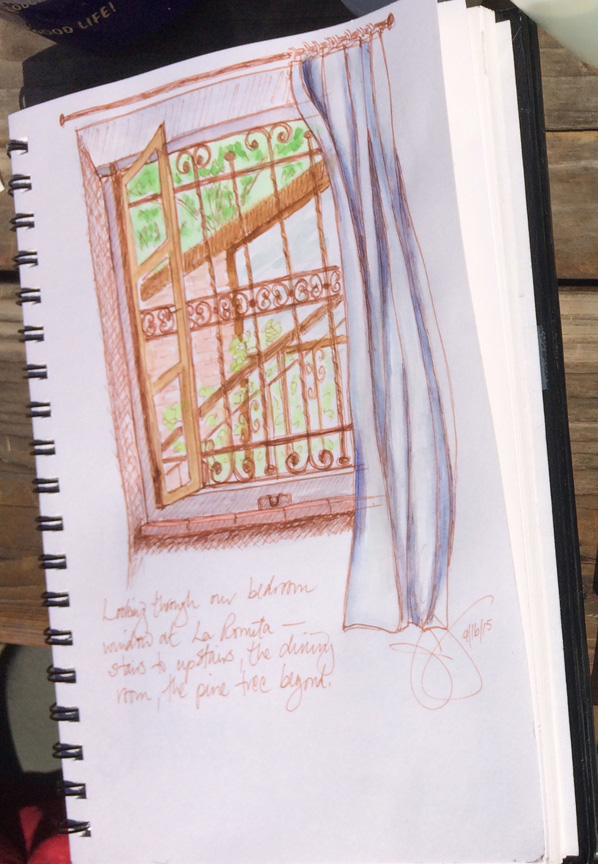 GOOD LIFE!
Looking through our bedroom
window at La Romita —
stairs to upstairs, the dining
room, the pine tree beyond.
9/16/15